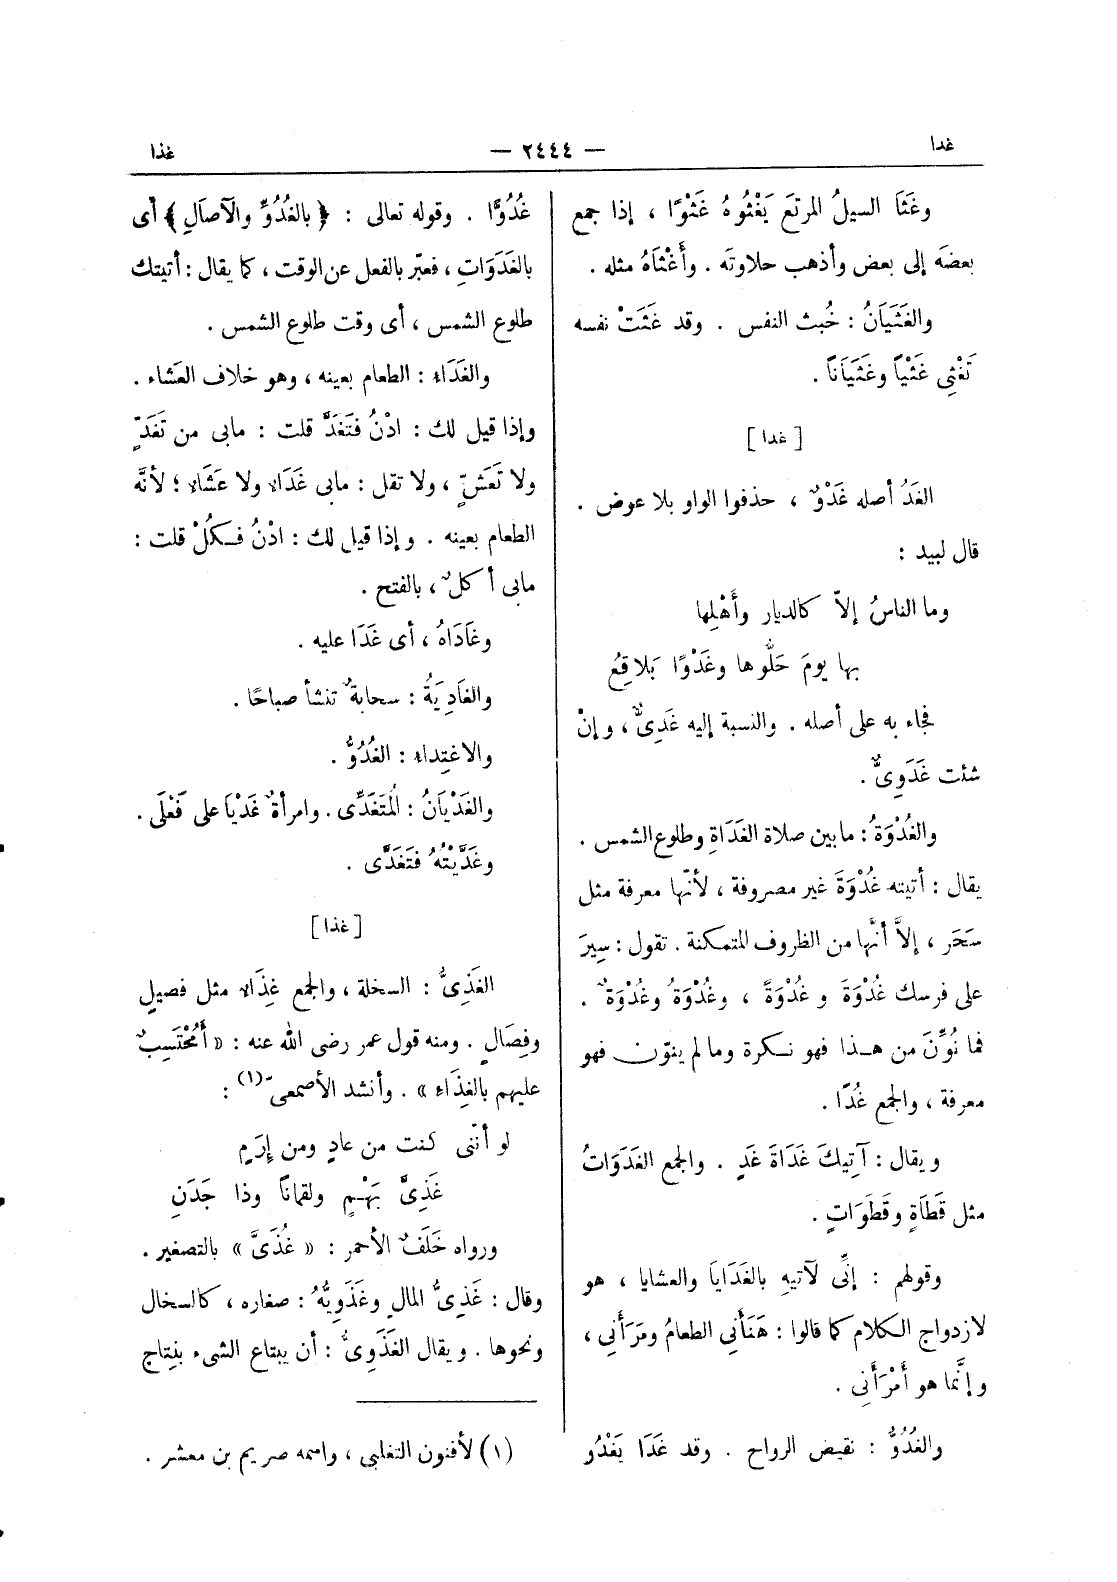 غدا
— ٢٤٤٤ —
غذا
وغَثَا السيلُ المرتَع يَغْثُوهُ غَثْوًا ، إذا جمع
بعضَه إلى بعض وأذهب حلاوتَه . وأَغْثَاهُ مثله .
والغَثَيَانُ : خُبث النفس . وقد غَثَتْ نفسه
تَغْثِى غَثْياً وغَثَيَاناً .
[ غدا ]
الغَدُ أصله غَدْوٌ ، حذفوا الواو بلا عوض .
قال لبيد :
وما الناسُ إلاّ كالديار وأَهْلِها
بها يومَ حَلُّوها وغَدْوًا بَلاقِعُ
فجاء به على أصله . والنسبة إليه غَدِىٌّ ، وإنْ
شئت غَدَوِىٌّ .
والغُدْوَةُ : ما بين صلاة الغَدَاةِ وطلوع الشمس .
يقال : أتيته غُدْوَةَ غير مصروفة ، لأنّها معرفة مثل
سَحَر ، إلاَّ أنَّها من الظروف المتمكنة . تقول : سِيرَ
على فرسك غُدْوَةَ و غُدْوَةً ، وغُدْوَةُ وغُدْوَةٌ .
فما نُوِّنَ من هـذا فهو نـكرة وما لم ينوّن فهو
معرفة ، والجمع غُدًا .
ويقال : آتِيكَ غَدَاةَ غَدٍ . والجمع الغَدَوَاتُ
مثل قَطَاةٍ وقَطَوَاتٍ .
وقولهم : إنِّى لآتيهِ بالغَدَايَا والعشايا ، هو
لازدواج الكلام كما قالوا : هَنَأَنِى الطعامُ ومَرَأَنِى ،
وإنَّما هو أَمْرَأَنِى .
والغُدُوُّ : نقيض الرواح . وقد غَدَا يَغْدُو
غُدُوًّا . وقوله تعالى : ﴿ بالغُدُوِّ والآصَالِ ﴾ أى
بالغَدَوَاتِ ، فعبّر بالفعل عن الوقت ، كما يقال : أتيتك
طلوع الشمس ، أى وقت طلوع الشمس .
والغَدَاء : الطعام بعينه ، وهو خلاف العَشاء .
وإذا قيل لك : ادْنُ فَتَغَدَّ قلت : مابى من تَغَدٍّ
ولا تَعَشٍّ ، ولا تقل : مابى غَدَاء ولا عَشَاء ؛ لأنَّه
الطعام بعينه . وإذا قيل لك : ادْنُ فـكُلْ قلت :
مابى أكلٌ ، بالفتح .
وغَادَاهُ ، أى غَدَا عليه .
والغَادِيَةُ : سحابةٌ تنشأ صباحًا .
والاغتِداء : الغُدُوُّ .
والغَدْيَانُ : المُتَغَدِّى . وامرأةٌ غَدْيَا على فَعْلَى .
وغَدَّيْتُهُ فَتَغَدَّى .
[ غذا ]
الغَذِىُّ : السخلة ، والجمع غِذَاء مثل فصيلٍ
وفِصَالٍ . ومنه قول عمر رضى الله عنه : « أَمُحْتَسِبٌ
عليهم بالغِذَاءِ » . وأنشد الأصمعىّ (١) :
لو أنّنى كنت من عادٍ ومن إِرَمٍ
غَذِىَّ بَهْـمٍ ولقماناً وذا جَدَنِ
ورواه خَلَفٌ الأحمر : « غُذَىَّ » بالتصغير .
وقال : غَذِىُّ المالِ وغَذَوِيُّهُ : صغاره ، كالسخال
ونحوها . ويقال الغَذَوِىُّ : أن يبتاع الشىء بنِتِاج
(١) لأفنون التغلبى ، واسمه صريم بن معشر .